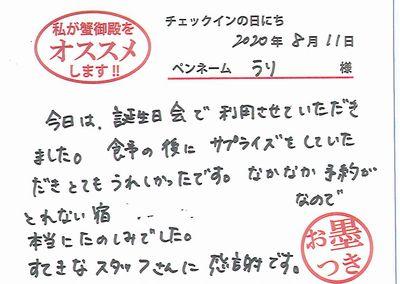 私が蟹御殿を
オススメ
します!!
チェックインの日にち
2020年 8月 11日
ペンネーム うり 様
今日は、誕生日会で利用させていただき
ました。食事の後にサプライズをしていた
だきとてもうれしかったです。なかなか予約が
とれない宿 なので
本当にたのしみでした。
すてきなスタッフさんに感謝です。
お墨
つき